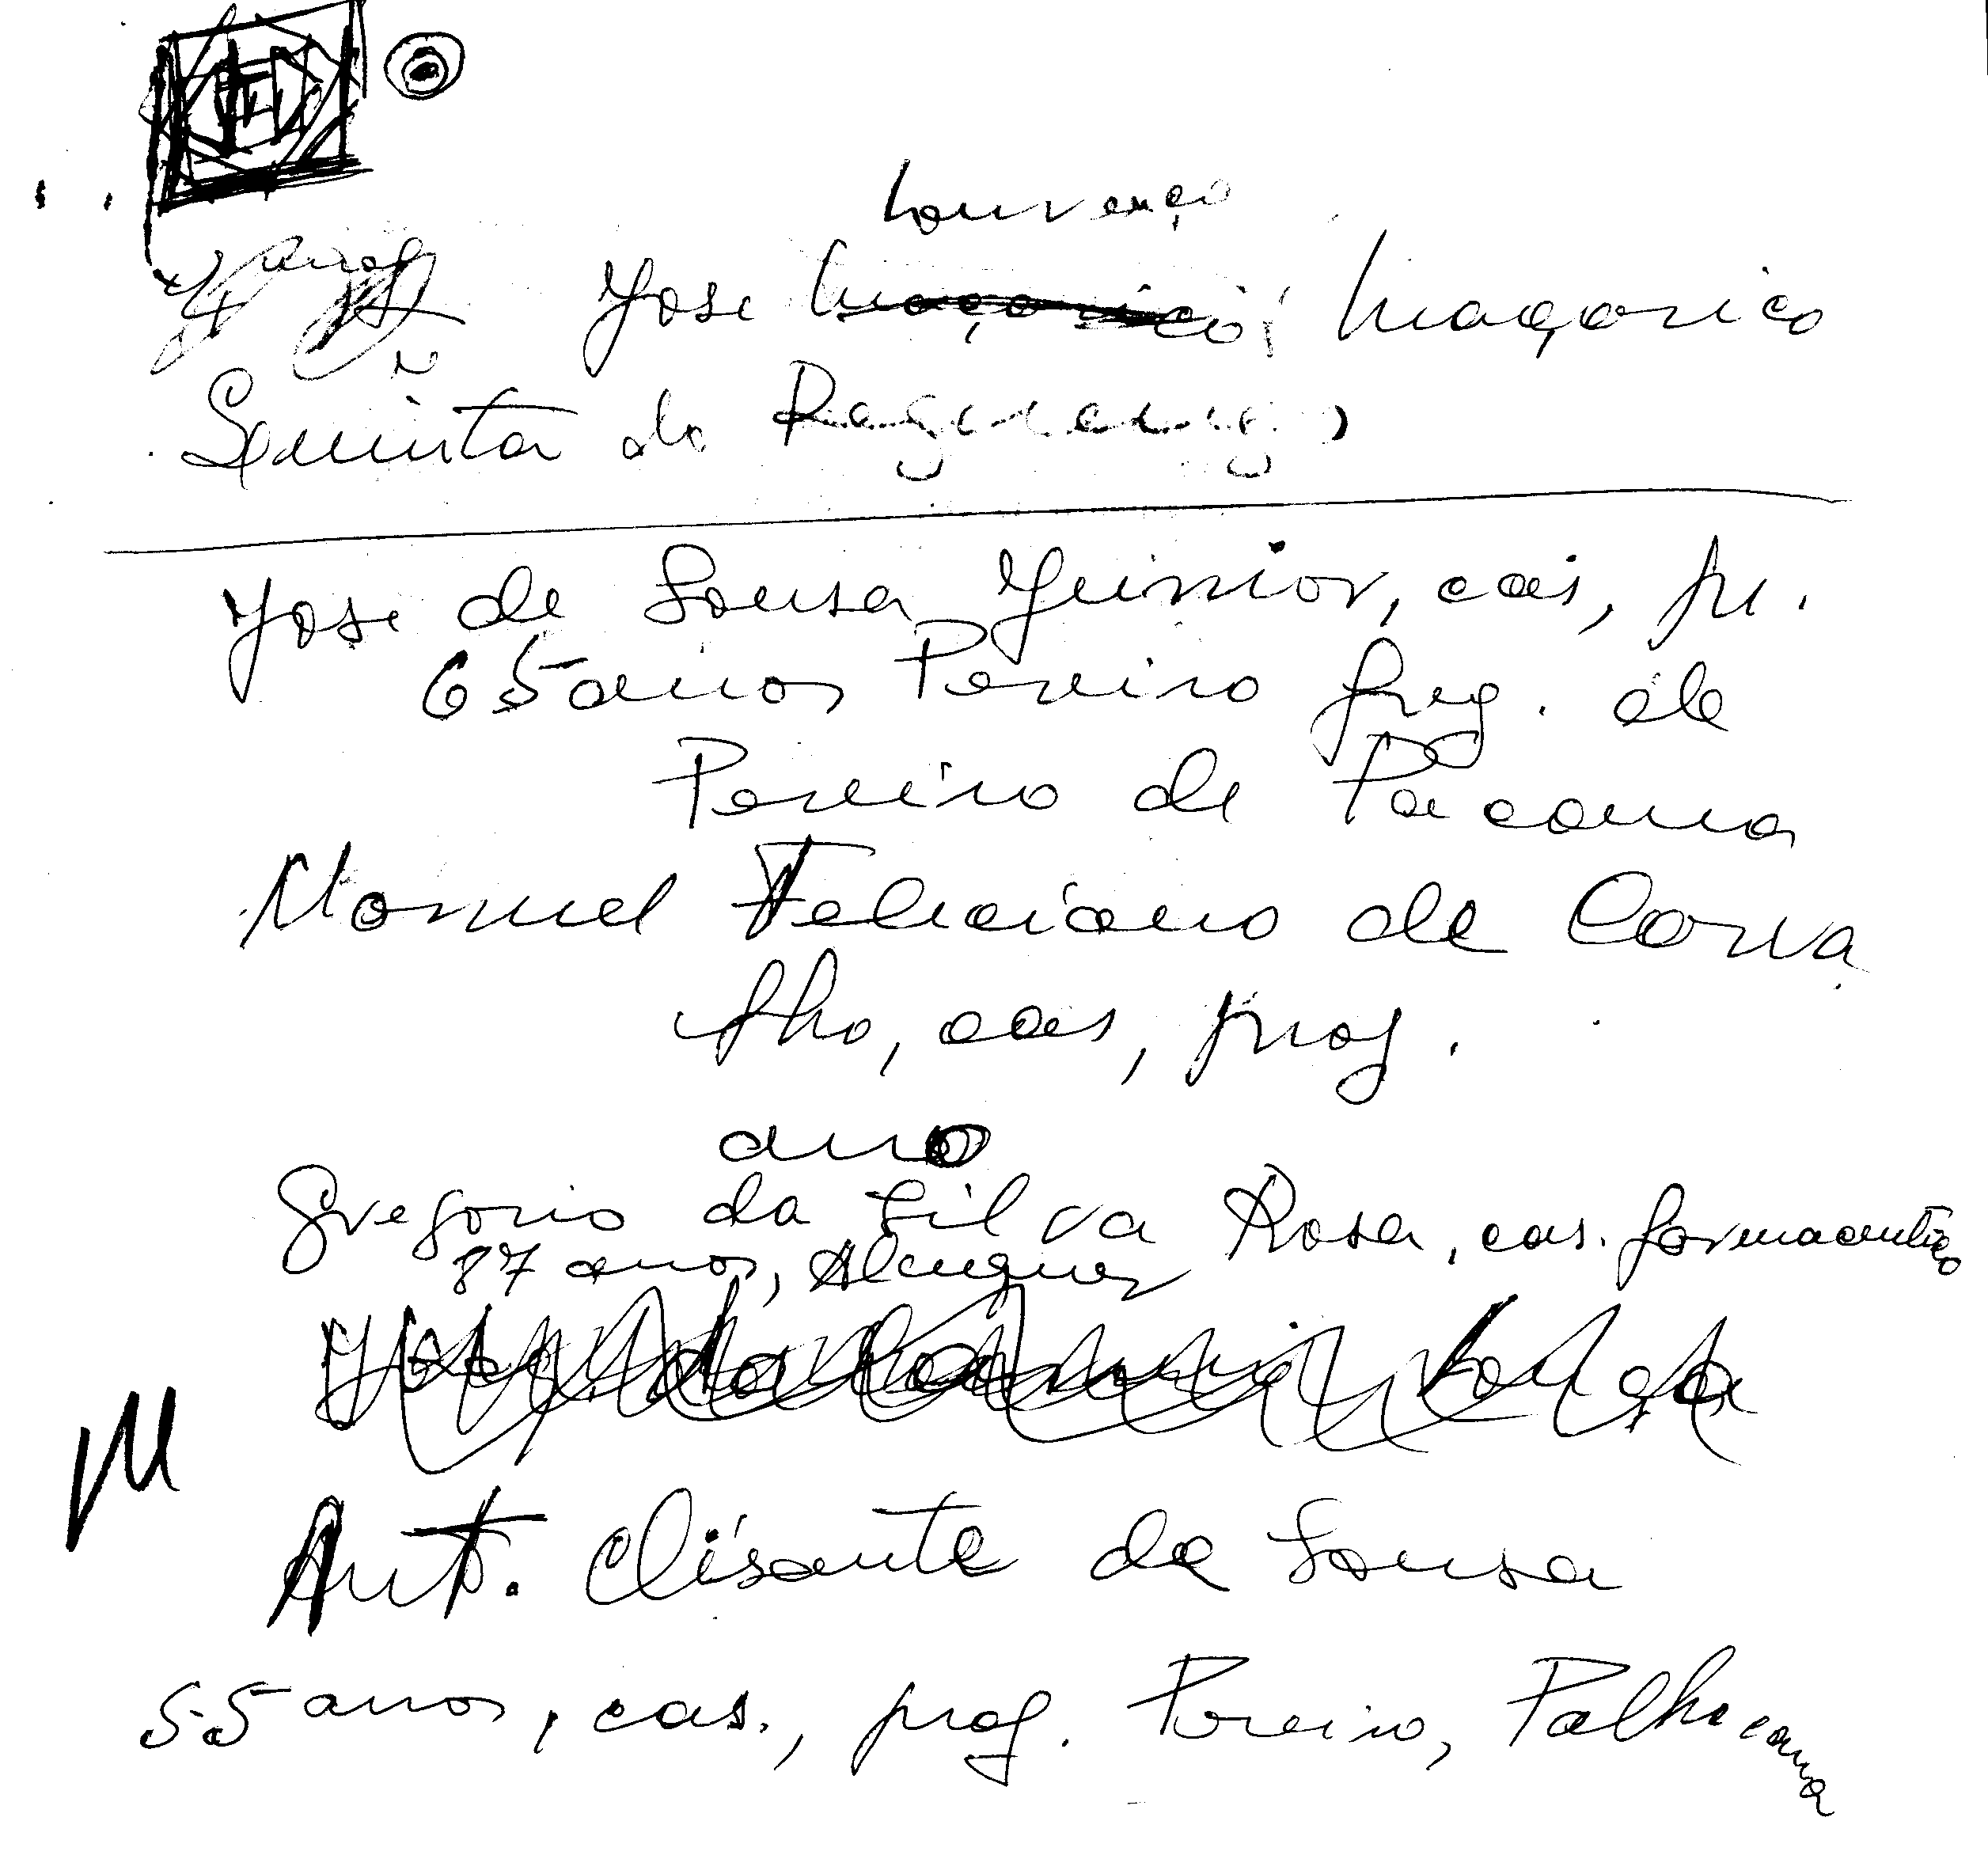 Lourenço
Jose Maçarico
Quinta do
Jose de Sousa Junior, cas, pr.
65 anos Pereiro freg. de
Pereiro de Pacana
Manuel Feliciano de Carva
lho, cas, prog.
ano
Gregorio da Silva Rosa, cas. farmaceutico
87 anos, Alenquer
M
Ant. Elisante de Sousa
55 anos, cas., prog. Pereiro, Palhacana